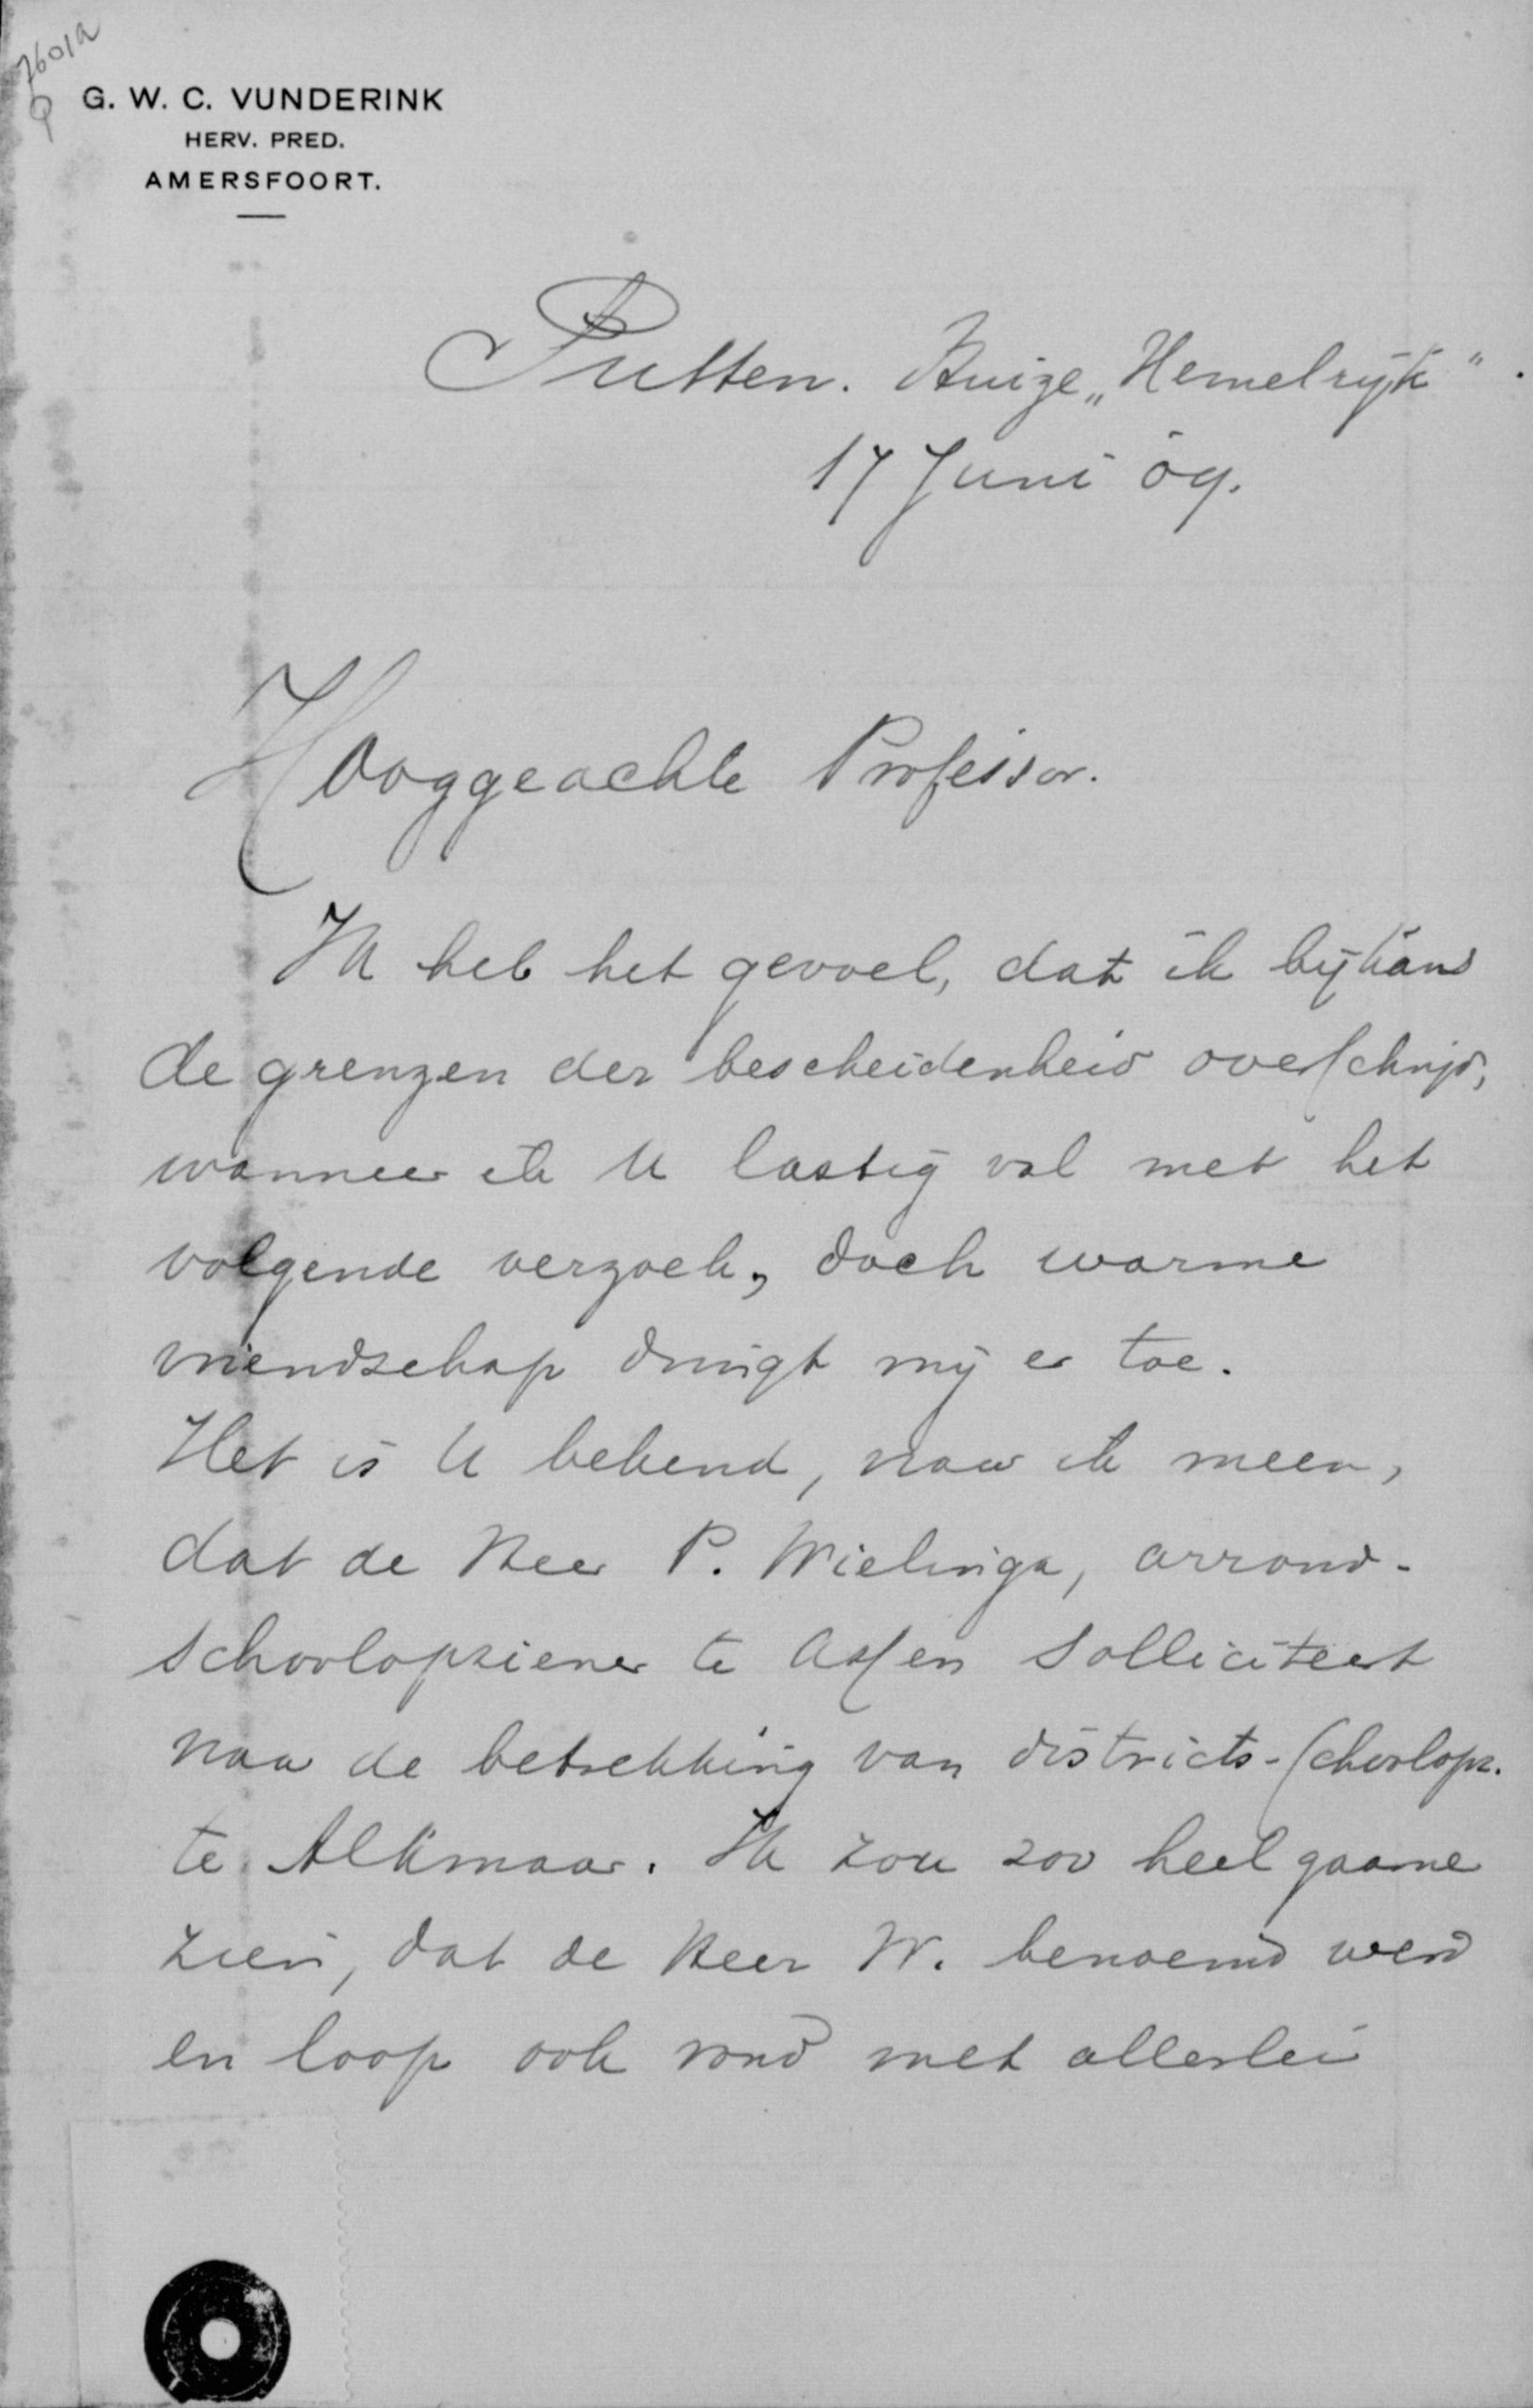 7601a
G. W. C. VUNDERINK
HERV. PRED.
AMERSFOORT.
Putten. Huize „Hemelrijk”.
17 Juni 09.
Hooggeachte Professor.
Ik heb het gevoel, dat ik bijkans
de grenzen der bescheidenheid overschrijd,
wanneer ik U lastig val met het
volgende verzoek, doch warme
vriendschap dringt mij er toe.
Het is U bekend, naar ik meen,
dat de Heer P. Wielinga, arrond-
schoolopziener te Assen solliciteert
naar de betrekking van districts-schoolopz.
te Alkmaar. Ik zou zoo heel gaarne
zien, dat de Heer W. benoemd werd
en loop ook rond met allerlei